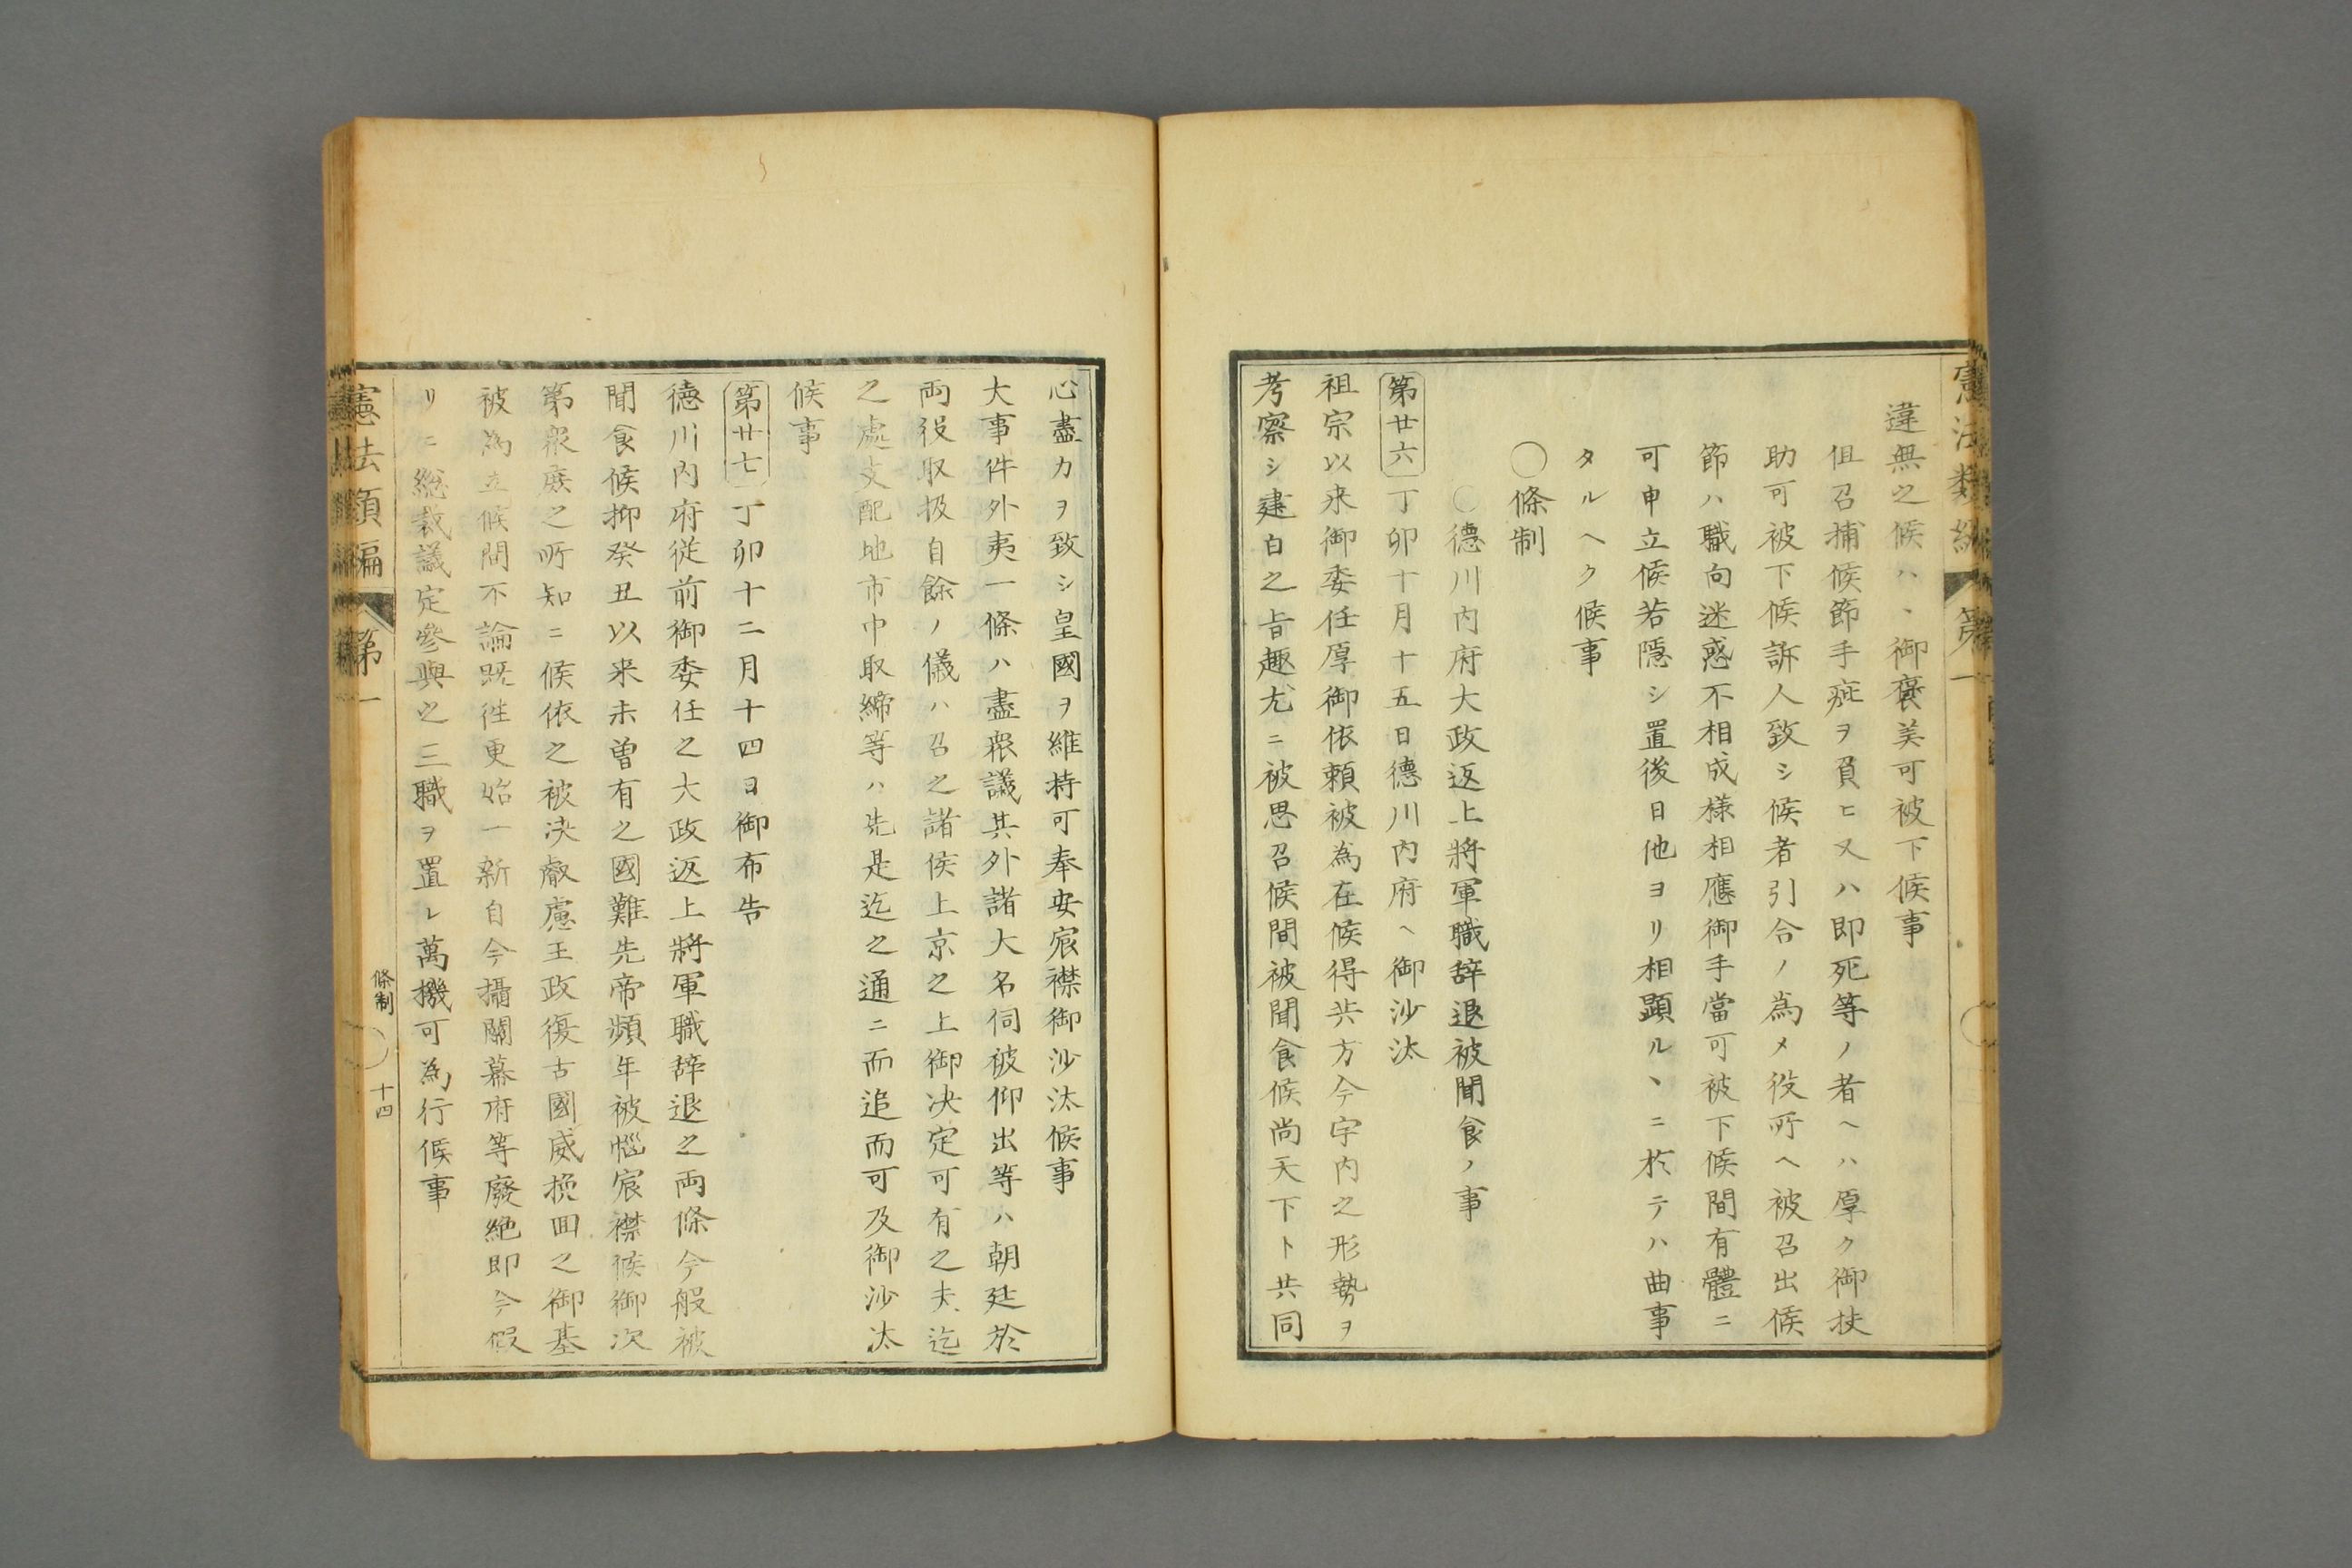 違無之候ハヽ御褒美可被下候事
但召捕候節手疵ヲ負ヒ又ハ即死等ノ者ヘハ厚ク御扶
助可被下候訴人致シ候者引合ノ為メ役所ヘ被召出候
節ハ職向迷惑不相成様相應御手當可被下候間有體ニ
可申立候若隠シ置後日他ヨリ相顕ルヽニ於テハ曲事
タルヘク候事
〇條制
〇德川内府大政返上將軍職辞退被聞食ノ事
第廿六 丁卯十月十五日德川内府ヘ御沙汰
祖宗以来御委任厚御依頼被為在候得共方今宇内之形勢ヲ
考察シ建白之旨趣尤ニ被思召候間被聞食候尚天下ト共同
心盡力ヲ致シ皇國ヲ維持可奉安宸襟御沙汰候事
大事件外夷一條ハ盡衆議其外諸大名伺被仰出等ハ朝廷於
両役取扱自餘ノ儀ハ召之諸侯上京之上御決定可有之夫迄
之處支配地市中取締等ハ先是迄之通ニ而追而可及御沙汰
候事
第廿七 丁卯十二月十四日御布告
德川内府従前御委任之大政返上將軍職辞退之両條今般被
聞食候抑癸丑以来未曽有之國難先帝頻年被惱宸襟候御次
第衆庶之所知ニ候依之被決叡慮王政復古國威挽回之御基
被為立候間不論既往更始一新自今攝關幕府等廢絶即今假
リニ總裁議定參與之三職ヲ置レ萬機可為行候事
憲法類編 第一
條制 十四